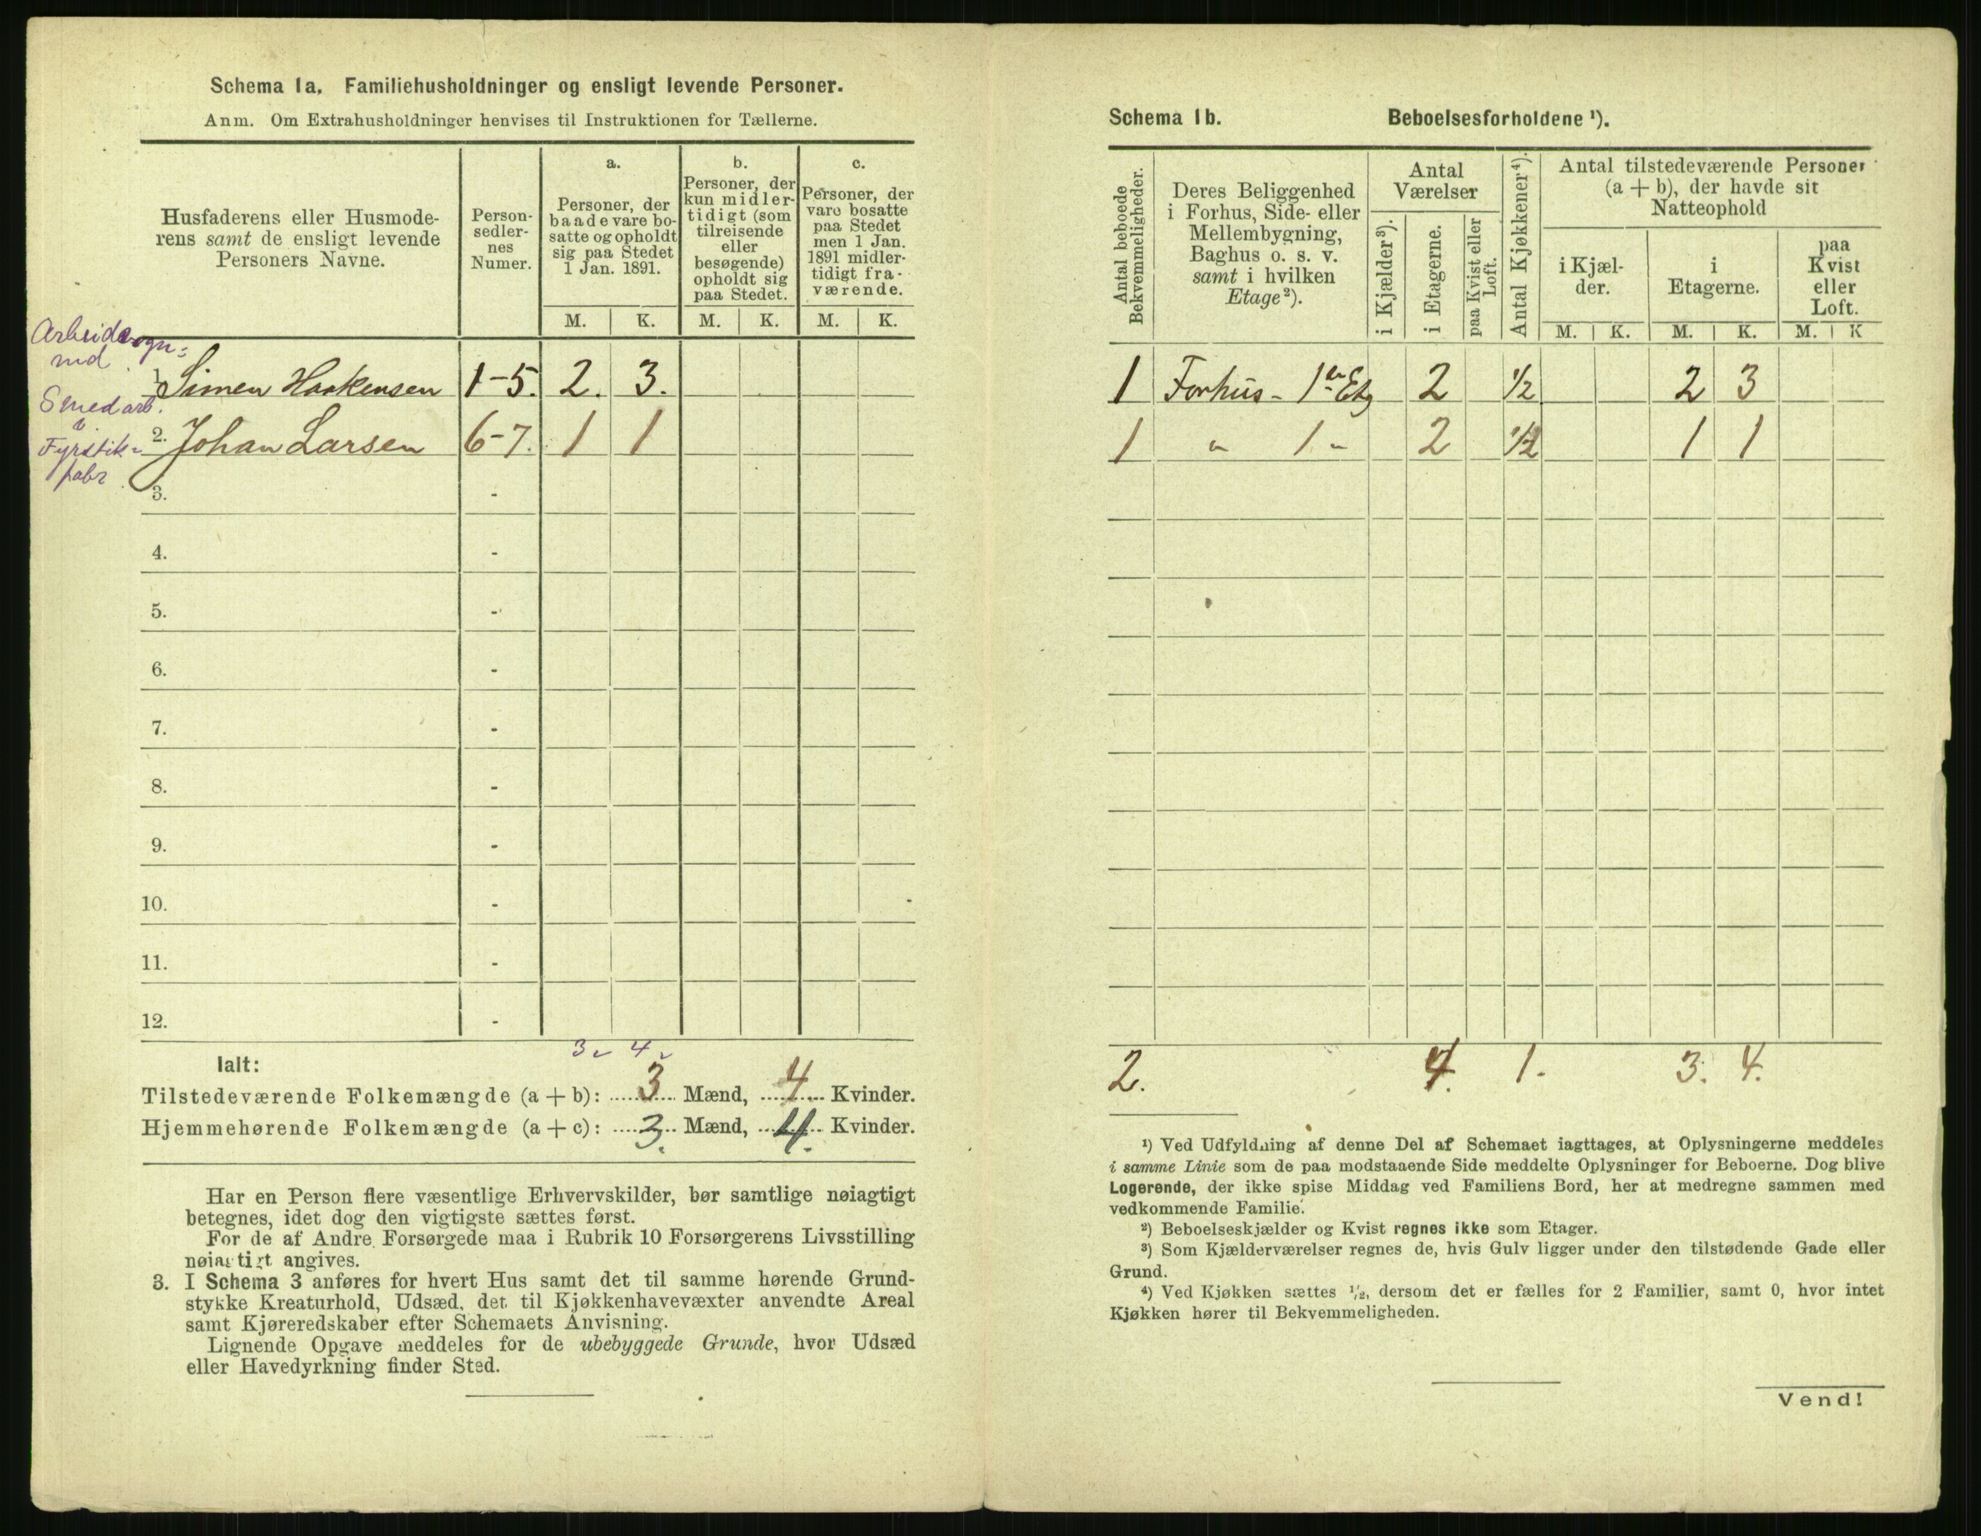 Schema 1a. Familiehusholdninger og ensligt levende Personer.
Anm. Om Extrahusholdninger henvises til Instruktionen for Tællerne.
Husfaderens eller Husmode-
rens samt de ensligt levende
Personers Navne.
Person-
sedler-
nes
Numer.
a.
Personer, der
baade vare bo-
satte og opholdt
sig paa Stedet
1 Jan. 1891.
b.
Personer, der
kun midler-
tidigt (som
tilreisende
eller
besøgende)
opholdt sig
paa Stedet.
c.
Personer, der
vare bosatte
paa Stedet
men 1 Jan.
1891 midler-
tidigt fra-
værende.
M. K. M. K. M. K.
1. Simen Haakensen 1-5. 2. 3.
Smedarb.
Fyrstik-
fabr
2. Johan Larsen 6-7. 1 1
3. -
4. -
5. -
6. -
7. -
8. -
9. -
10. -
11. -
12. -
3 4
Ialt:
Tilstedeværende Folkemængde (a + b): 3 Mænd, 4 Kvinder.
Hjemmehørende Folkemængde (a + c): 3. Mænd, 4. Kvinder.
Har en Person flere væsentlige Erhvervskilder, bør samtlige nøiagtigt
betegnes, idet dog den vigtigste sættes først.
For de af Andre Forsørgede maa i Rubrik 10 Forsørgerens Livsstilling
nøiagtigt angives.
3. I Schema 3 anføres for hvert Hus samt det til samme hørende Grund-
stykke Kreaturhold, Udsæd, det til Kjøkkenhavevæxter anvendte Areal
samt Kjøreredskaber efter Schemaets Anvisning.
Lignende Opgave meddeles for de ubebyggede Grunde, hvor Udsæd
eller Havedyrkning finder Sted.
Schema 1b. Beboelsesforholdene ¹).
Antal beboede
Bekvemmeligheder.
Deres Beliggenhed
i Forhus, Side- eller
Mellembygning,
Baghus o. s. v.
samt i hvilken
Etage ²).
Antal
Værelser
i Kjælder ³).
i Etagerne.
paa Kvist eller
Loft.
Antal Kjøkkener ⁴).
Antal tilstedeværende Personer
(a + b), der havde sit
Natteophold
i Kjæl-
der.
i
Etagerne.
paa
Kvist
eller
Loft.
M. K. M. K. M. K
1 Forhus - 1ste Etg 2 1/2 2 3
1 " 1 " 2 1/2 1 1
2. 4. 1. 3. 4.
¹) Ved Udfyldning af denne Del af Schemaet iagttages, at Oplysningerne meddeles
i samme Linie som de paa modstaaende Side meddelte Oplysninger for Beboerne. Dog blive
Logerende, der ikke spise Middag ved Familiens Bord, her at medregne sammen med
vedkommende Familie.
²) Beboelseskjælder og Kvist regnes ikke som Etager.
³) Som Kjælderværelser regnes de, hvis Gulv ligger under den tilstødende Gade eller
Grund.
⁴) Ved Kjøkken sættes ½, dersom det er fælles for 2 Familier, samt 0, hvor intet
Kjøkken hører til Bekvemmeligheden.
Vend!